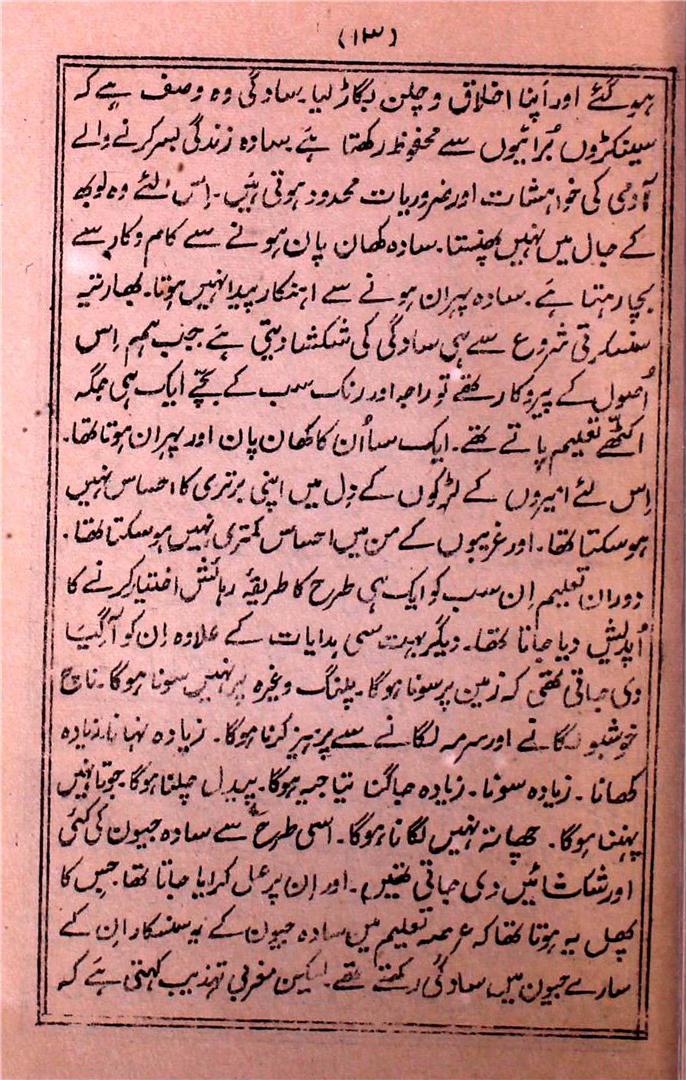 (۱۳)
ہو گئے اور اپنا اخلاق و چلن بگاڑ لیا۔ سادگی وہ وصف ہے کہ
سینکڑوں بُرائیوں سے محفوظ رکھتا ہے۔ سادہ زندگی بسر کرنے والے
آدمی کی خواہشات اور ضروریات محدود ہوتی ہیں۔ اِس لئے وہ لوبھ
کے جال میں نہیں پھنستا۔ سادہ کھان پان ہونے سے کام وِکار سے
بچا رہتا ہے۔ سادہ پہران ہونے سے اہنکار پیدا نہیں ہوتا۔ بھارتیہ
سنسکرتی شروع سے ہی سادگی کی شکشا دیتی ہے۔ جب ہم اِس
اُصول کے پیروکار تھے تو راجہ اور رنک سب کے بچّے ایک ہی جگہ
اکٹھّے تعلیم پاتے تھے۔ ایک سا اُن کا کھان پان اور پہران ہوتا تھا۔
اِس لئے امیروں کے لڑکوں کے دِل میں اپنی برتری کا احساس نہیں
ہو سکتا تھا۔ اور غریبوں کے من میں احساس کمتری نہیں ہو سکتا تھا۔
دوران تعلیم اِن سب کو ایک ہی طرح کا طریقۂ رہائش اختیار کرنے کا
اُپدیش دیا جاتا تھا۔ دیگر بہت سی ہدایات کے علاوہ اِن کو آگیا
دی جاتی تھی کہ زمین پر سونا ہوگا۔ پلنگ وغیرہ پر نہیں سونا ہوگا۔ ناچ
خوشبو لگانے اور سرمہ لگانے سے پرہیز کرنا ہوگا۔ زیادہ نہانا۔ زیادہ
کھانا۔ زیادہ سونا۔ زیادہ جاگنا تیاجیہ ہوگا۔ پیدل چلنا ہوگا۔ جوتا نہیں
پہننا ہوگا۔ چھاتہ نہیں لگانا ہوگا۔ اسی طرح سے سادہ جیون کی کئی
اور شکشائیں دی جاتی تھیں۔ اور اِن پر عمل کرایا جاتا تھا۔ جِس کا
پھل یہ ہوتا تھا کہ عرصہ تعلیم میں سادہ جیون کے یہ سنسکار اِن کے
سارے جیون میں سادگی رکھتے تھے۔ لیکن مغربی تہذیب کہتی ہے کہ